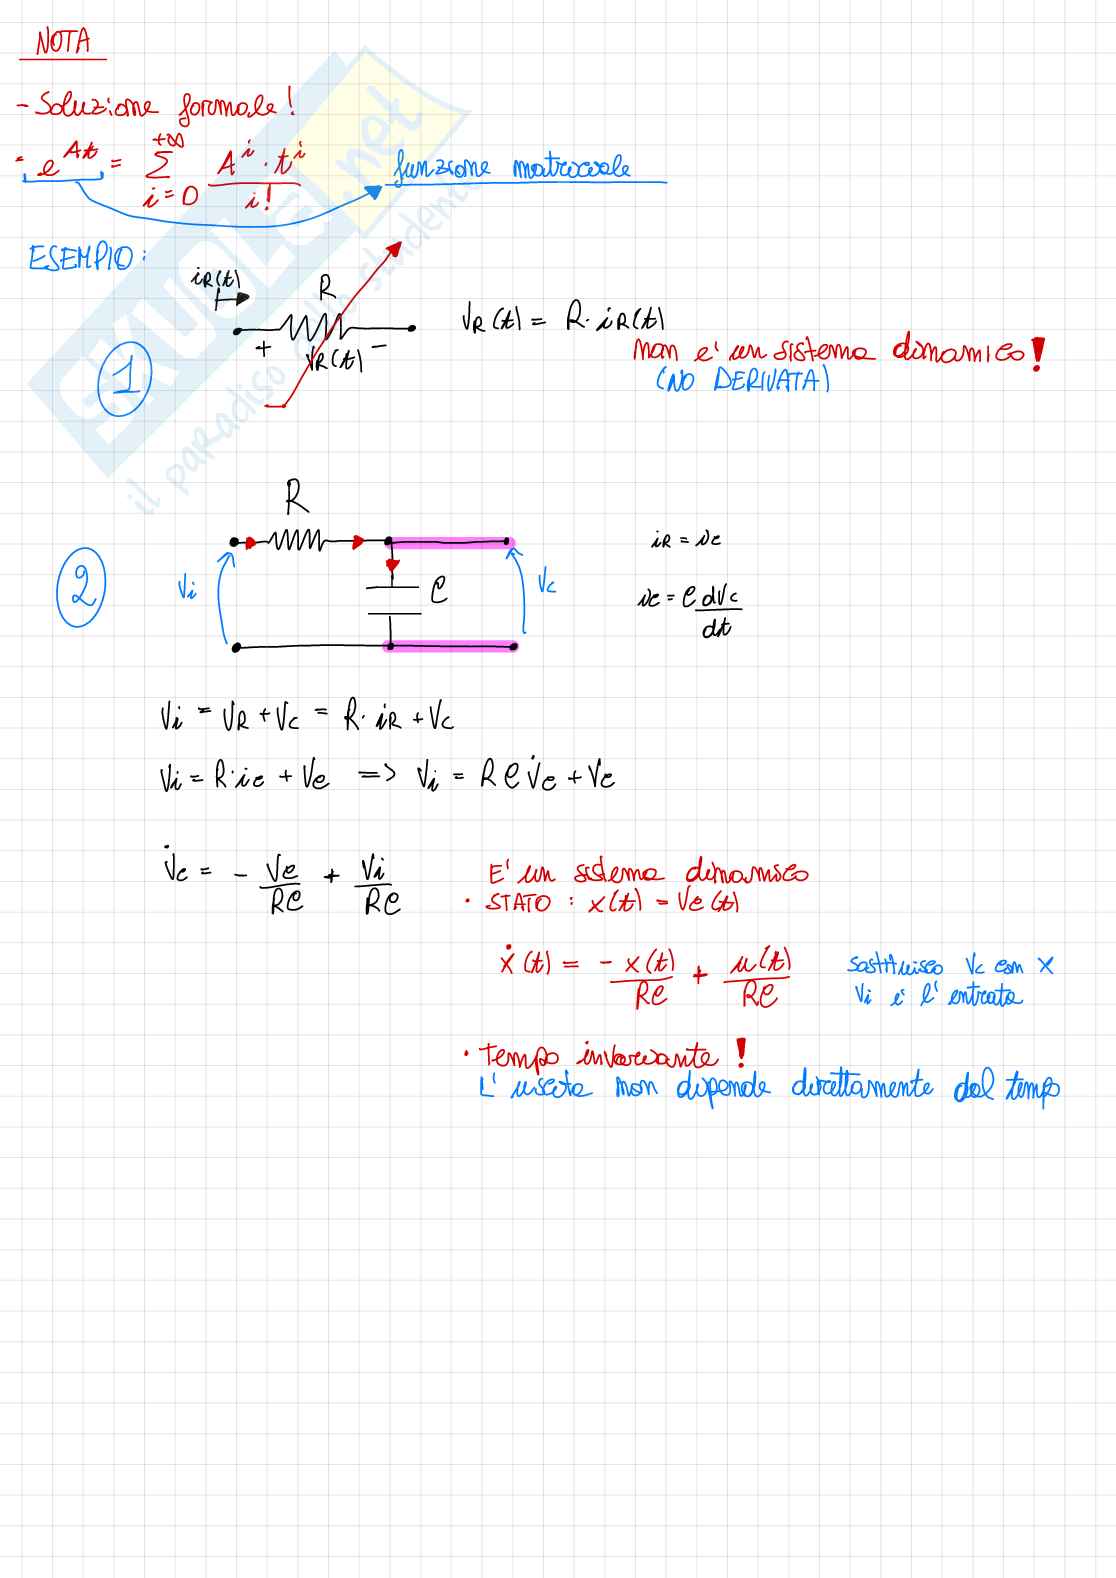 NOTA
- Soluzione formale!
· e^{At} = \sum_{i=0}^{+\infty} \frac{A^i \cdot t^i}{i!} funzione matriciale
ESEMPIO:
iR(t)
R
+ VR(t) -
VR(t) = R · iR(t)
non e' un sistema dinamico!
(NO DERIVATA)
1
R
2
Vi
C
Vc
iR = ic
ic = C dVc/dt
Vi = VR + VC = R · iR + VC
Vi = R · ic + Vc => Vi = RC V̇c + Vc
V̇c = - Vc/RC + Vi/RC
E' un sistema dinamico
· STATO : x(t) = Vc(t)
ẋ(t) = - x(t)/RC + u(t)/RC
sostituisco Vc con x
Vi è l'entrata
· Tempo invariante!
L'uscita non dipende direttamente dal tempo
SKUOLA.net
il paradiso dello studente